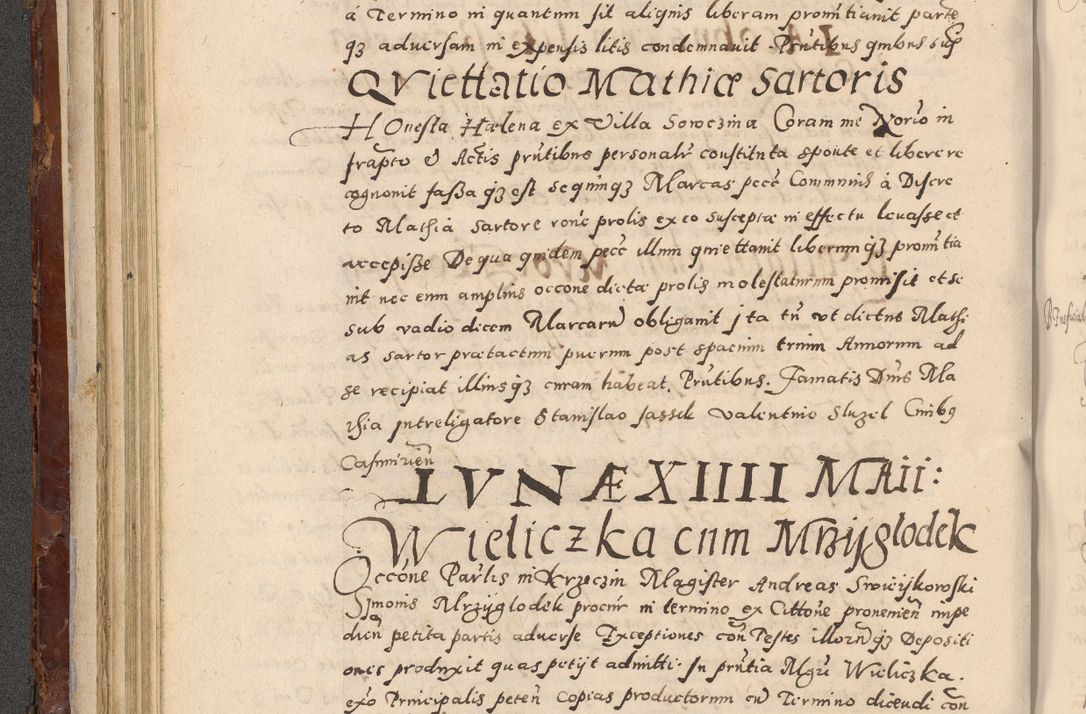 à Termino in quantum sit alignis liberam promtiauit parte
qz aduersam in expensis litis condemnauit. Prntibus qmbus sup
QVietatio Mathiæ Sartoris
HOnesta Hælena ex Villa Soroczina Coram me Norio in
frapto et Actis prntibus personalr constituta sponte et libere re
cognouit fassa qz est se quinqz Marcas pecc Communis à Discre
to Mathia Sartore rone prolis ex eo susceptæ in effectu leuasse et
accepisse De qua quidem pecc illum quiettauit liberumqz promtia
uit nec eum amplius occone dictæ prolis molestaturum promisit et se
sub vadio dicem Marcaru obligauit jta tn vt dictus Mathi
as sartor prætactum puerum post spacium trium Annorum ad
se recipiat illiusqz curam habeat. Prntibus. Famatis Dnis Ma
thia jntreligatore Stanislao Jassek Valentino Sluzel Ciuibq
Casimirien
LVNÆ XIIII MAii:
Wieliczka cum Mrzyglodek
Occone Partis in Krzeczin Magister Andreas Swicijkowski
Symonis Mrzyglodek procur in termino ex Cittone prouenien inpe
dien petita partis aduersæ Exceptiones con Testes illorumqz Depositi
ones produxit quas petijt admitti. In prntia Mgri Wieliczka.
exo Principalis peten Copias productorum cu Termino dicendi con